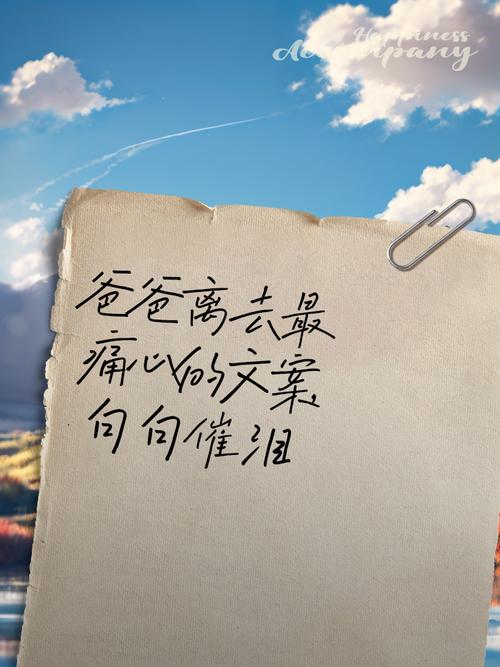 Happiness
Accompany
爸爸离去最
痛心的文案，
句句催泪